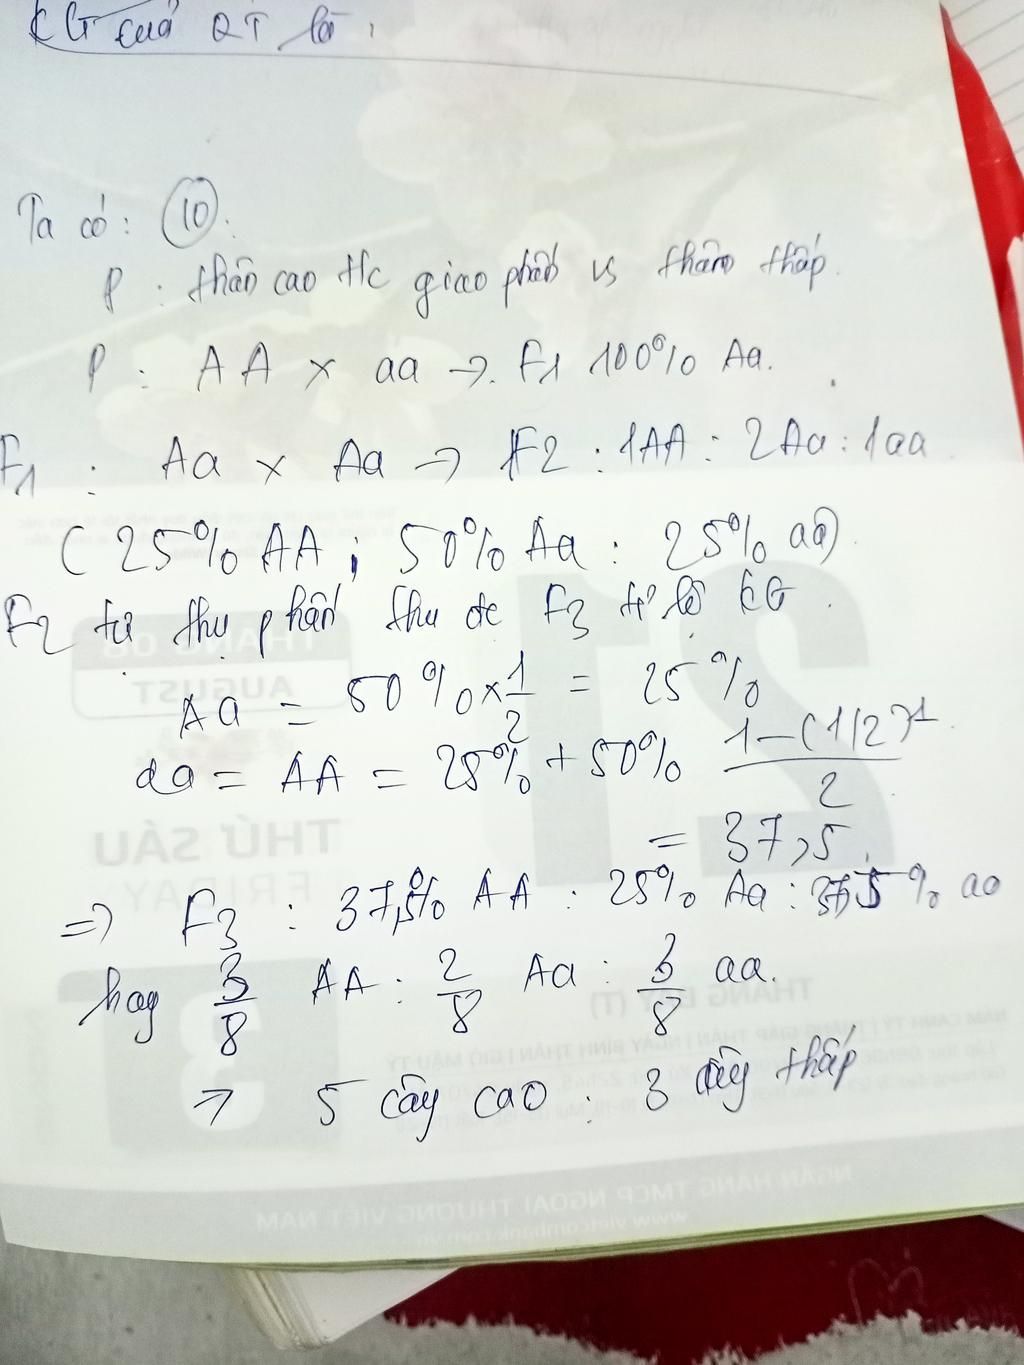 KG của QT là :
Ta có : (10) :
P : thân cao t/c giao phấn vs thân thấp.
P : AA x aa → F1 100% Aa.
F1 : Aa x Aa → F2 : 1AA : 2Aa : 1aa
( 25% AA ; 50% Aa : 25% aa)
F2 tự thụ phấn thu đc F3 tỉ lệ KG
Aa = 50% x 1/2 = 25%
aa = AA = 25% + 50% (1-(1/2)^1)/2
= 37,5
=> F3 : 37,5% AA : 25% Aa : 37,5% aa
hay 3/8 AA : 2/8 Aa : 3/8 aa.
→ 5 cây cao : 3 cây thấp
21
THÁNG 08
AUGUST
THỨ SÁU
FRIDAY
THÁNG BẢY (T)
NGÂN HÀNG TMCP NGOẠI THƯƠNG VIỆT NAM
www.vietcombank.com.vn